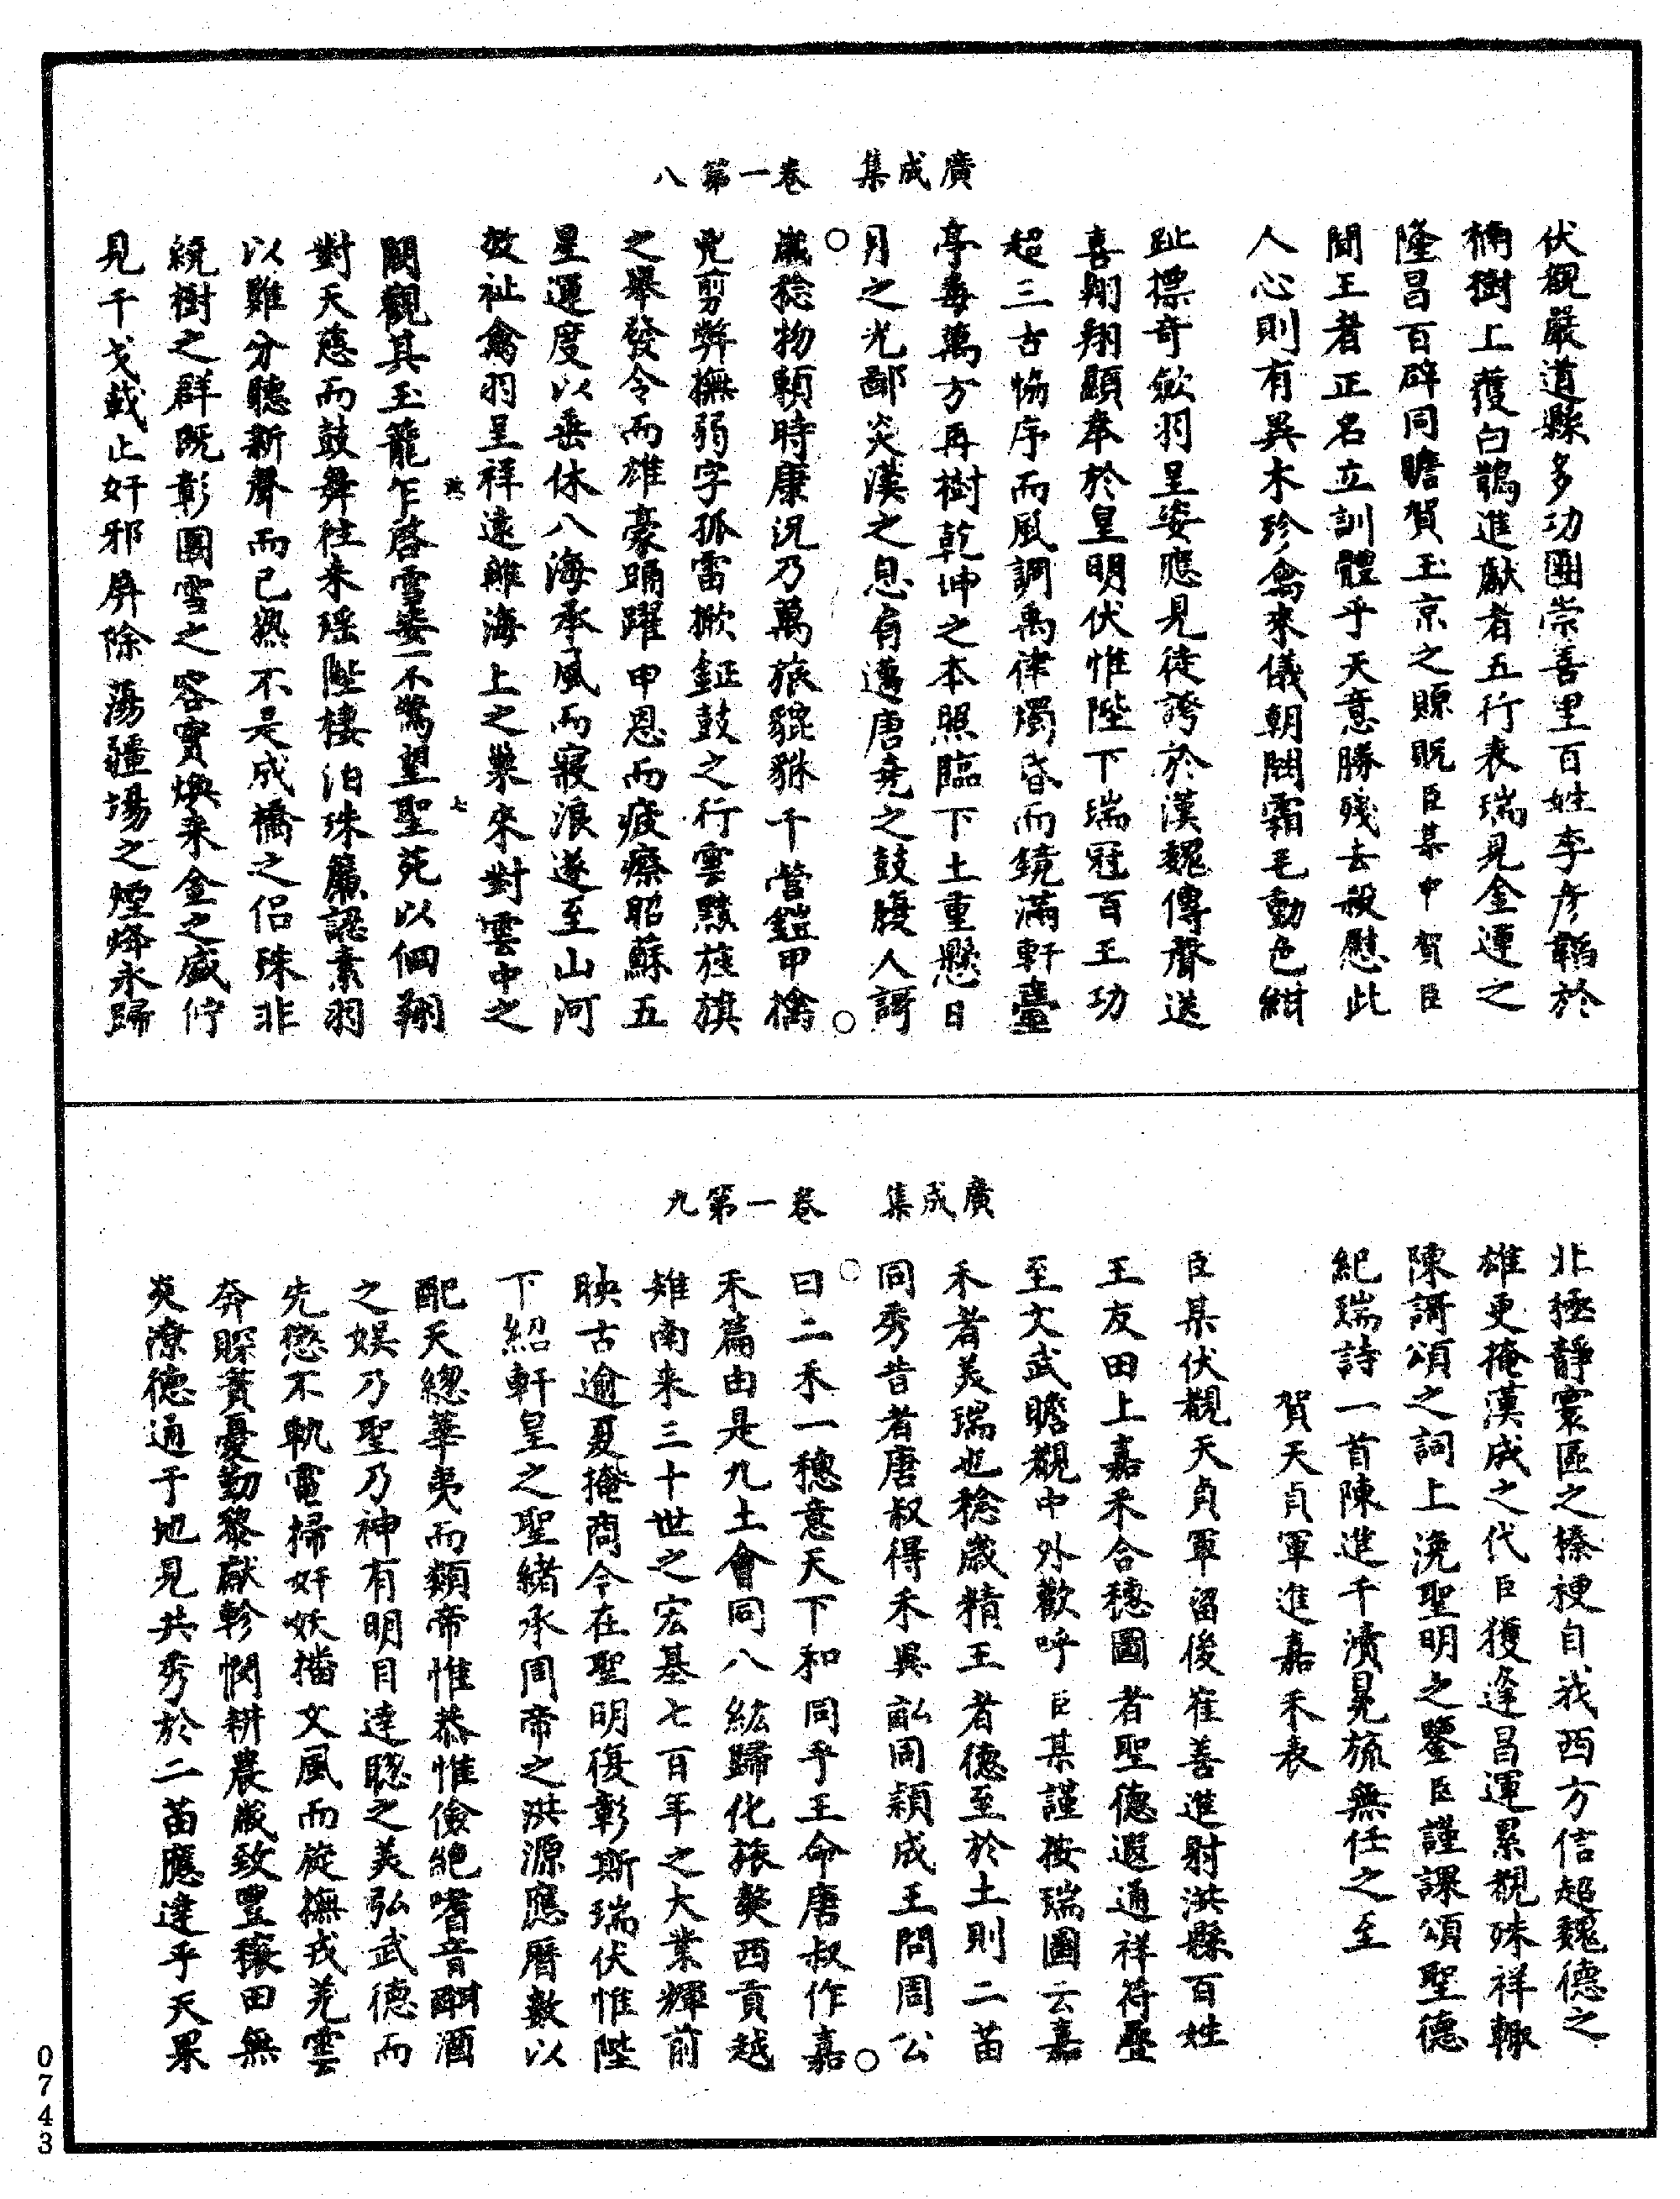 廣成集　卷一第八
伏覩嚴道縣多功團崇善里百姓李彥韜於
楠樹上獲白鵲進獻者五行表瑞見金運之
隆昌百辟同瞻賀玉京之賜貺臣某中賀臣
聞王者正名立訓體乎天意勝殘去殺慰此
人心則有異木珍禽來儀朝闕霜毛動色紺
趾摽奇斂羽呈姿應見徒誇於漢魏傳聲送
喜翔翔顯奉於皇明伏惟陛下瑞冠百王功
超三古恊序而風調禹律燭昏而鏡滿軒臺
亭毒萬方再樹乾坤之本照臨下土重懸日
月之光鄙炎漢之息肩邁唐堯之鼓腹人謌
歲稔物順時康況乃萬旅貔貅千營鎧甲擒
兇剪弊撫弱字孤雷掀鉦鼓之行雲黯旌旗
之舉發令而雄豪踊躍申恩而疲瘵昭蘇五
星運度以垂休八海承風而寢浪遂至山河
效祉禽羽呈祥遠離海上之巢來對雲中之
闕觀其玉籠乍啓雪姿不驚望聖苑以佪翔
對天慈而鼓舞徃来瑶陛棲泊珠簾認素羽
以難分聽新聲而已熟不是成橋之侣殊非
繞樹之群既彰團雪之容實煥来金之盛佇
見干戈載止奸邪屏除蕩疆埸之煙烽永歸
廣成集　卷一第九
北極靜寰區之榛梗自我西方信超魏德之
雄更掩漢成之代臣獲逢昌運累覩殊祥輙
陳謌頌之詞上浼聖明之鑒臣謹課頌聖德
紀瑞詩一首陳進千瀆冕旒無任之至
賀天貞軍進嘉禾表
臣某伏覩天貞軍留後崔善進射洪縣百姓
王友田上嘉禾合穗圖者聖德遐通祥符疊
至文武瞻覩中外歡呼臣某謹按瑞圖云嘉
禾者美瑞也稔歲精王者德至於土則二苗
同秀昔者唐叔得禾異畝同穎成王問周公
曰二禾一穗意天下和同乎王命唐叔作嘉
禾篇由是九土會同八紘歸化旅獒西貢越
雉南来三十世之宏基七百年之大業輝前
映古逾夏掩商今在聖明復彰斯瑞伏惟陛
下紹軒皇之聖緒承周帝之洪源應曆數以
配天緫華夷而類帝惟恭惟儉絶嗜音酣酒
之娱乃聖乃神有明目達聦之美弘武德而
先懲不軌電掃奸妖播文風而旋撫戎羌雲
奔賝賮憂勤黎獻軫憫耕農歲致豐穰田無
炎潦德通于地見共秀於二苗應達乎天果
0743